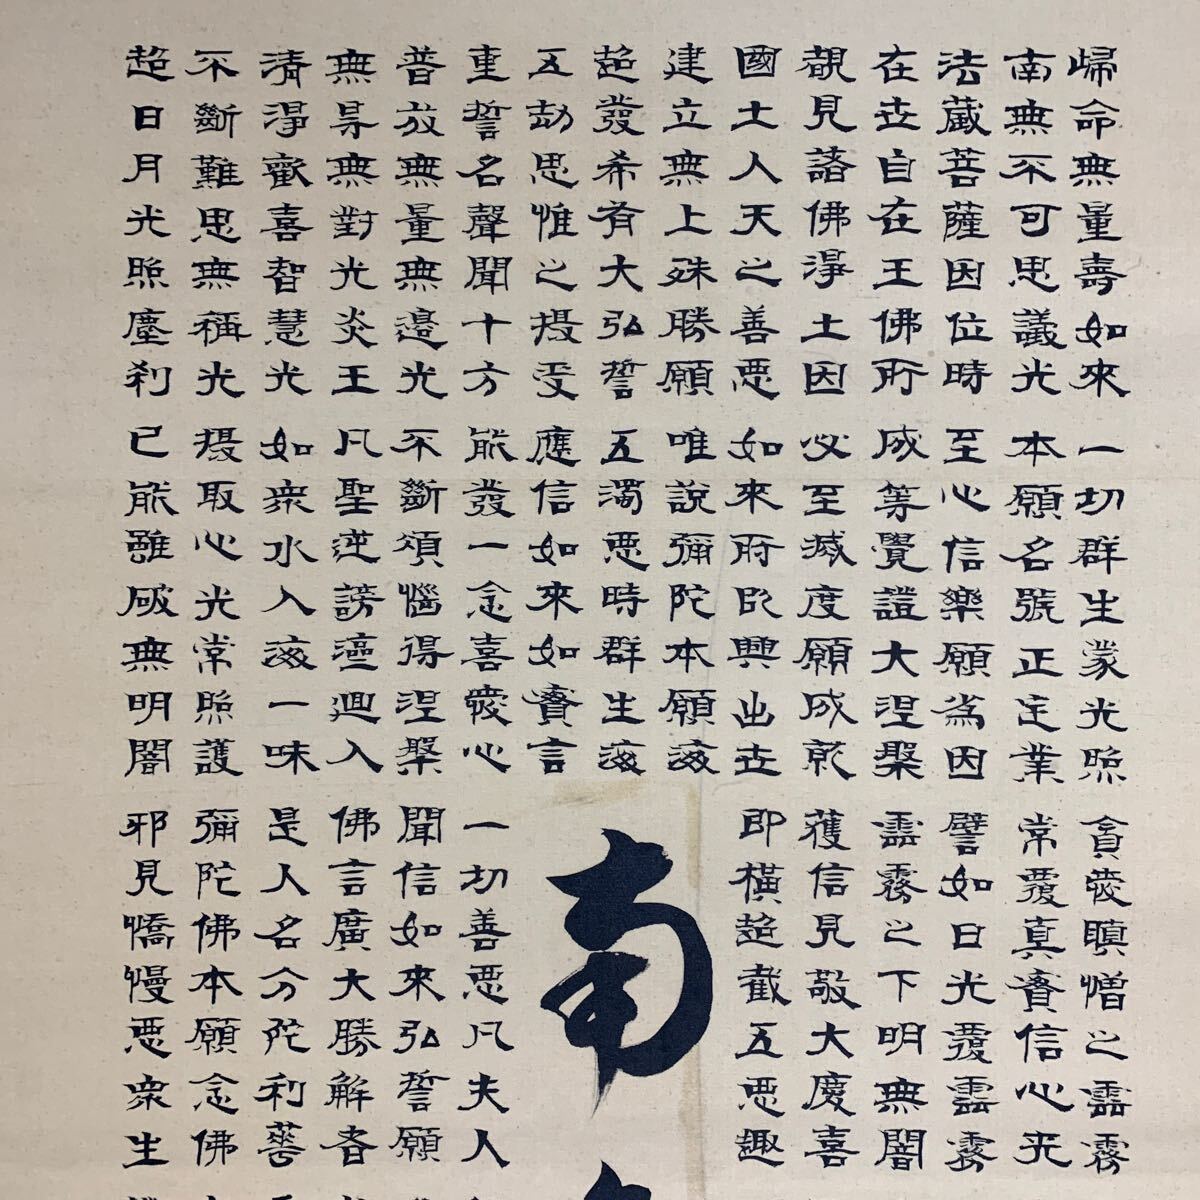 歸命無量壽如來
南無不可思議光
法藏菩薩因位時
在世自在王佛所
覩見諸佛淨土因
國土人天之善惡
建立無上殊勝願
超發希有大弘誓
五劫思惟之攝受
重誓名聲聞十方
普放無量無邊光
無㝵無對光炎王
清淨歡喜智慧光
不斷難思無稱光
超日月光照塵刹
一切群生蒙光照
本願名號正定業
至心信樂願為因
成等覺證大涅槃
必至滅度願成就
如來所以興出世
唯說彌陀本願海
五濁惡時群生海
應信如來如實言
能發一念喜愛心
不斷煩惱得涅槃
凡聖逆謗齊迴入
如衆水入海一味
攝取心光常照護
已能雖破無明闇
貪愛瞋憎之雲霧
常覆真實信心天
譬如日光覆雲霧
雲霧之下明無闇
獲信見敬大慶喜
即橫超截五惡趣
南
一切善惡凡夫人
聞信如來弘誓願
佛言廣大勝解者
是人名分陀利華
彌陀佛本願念佛
邪見憍慢惡衆生